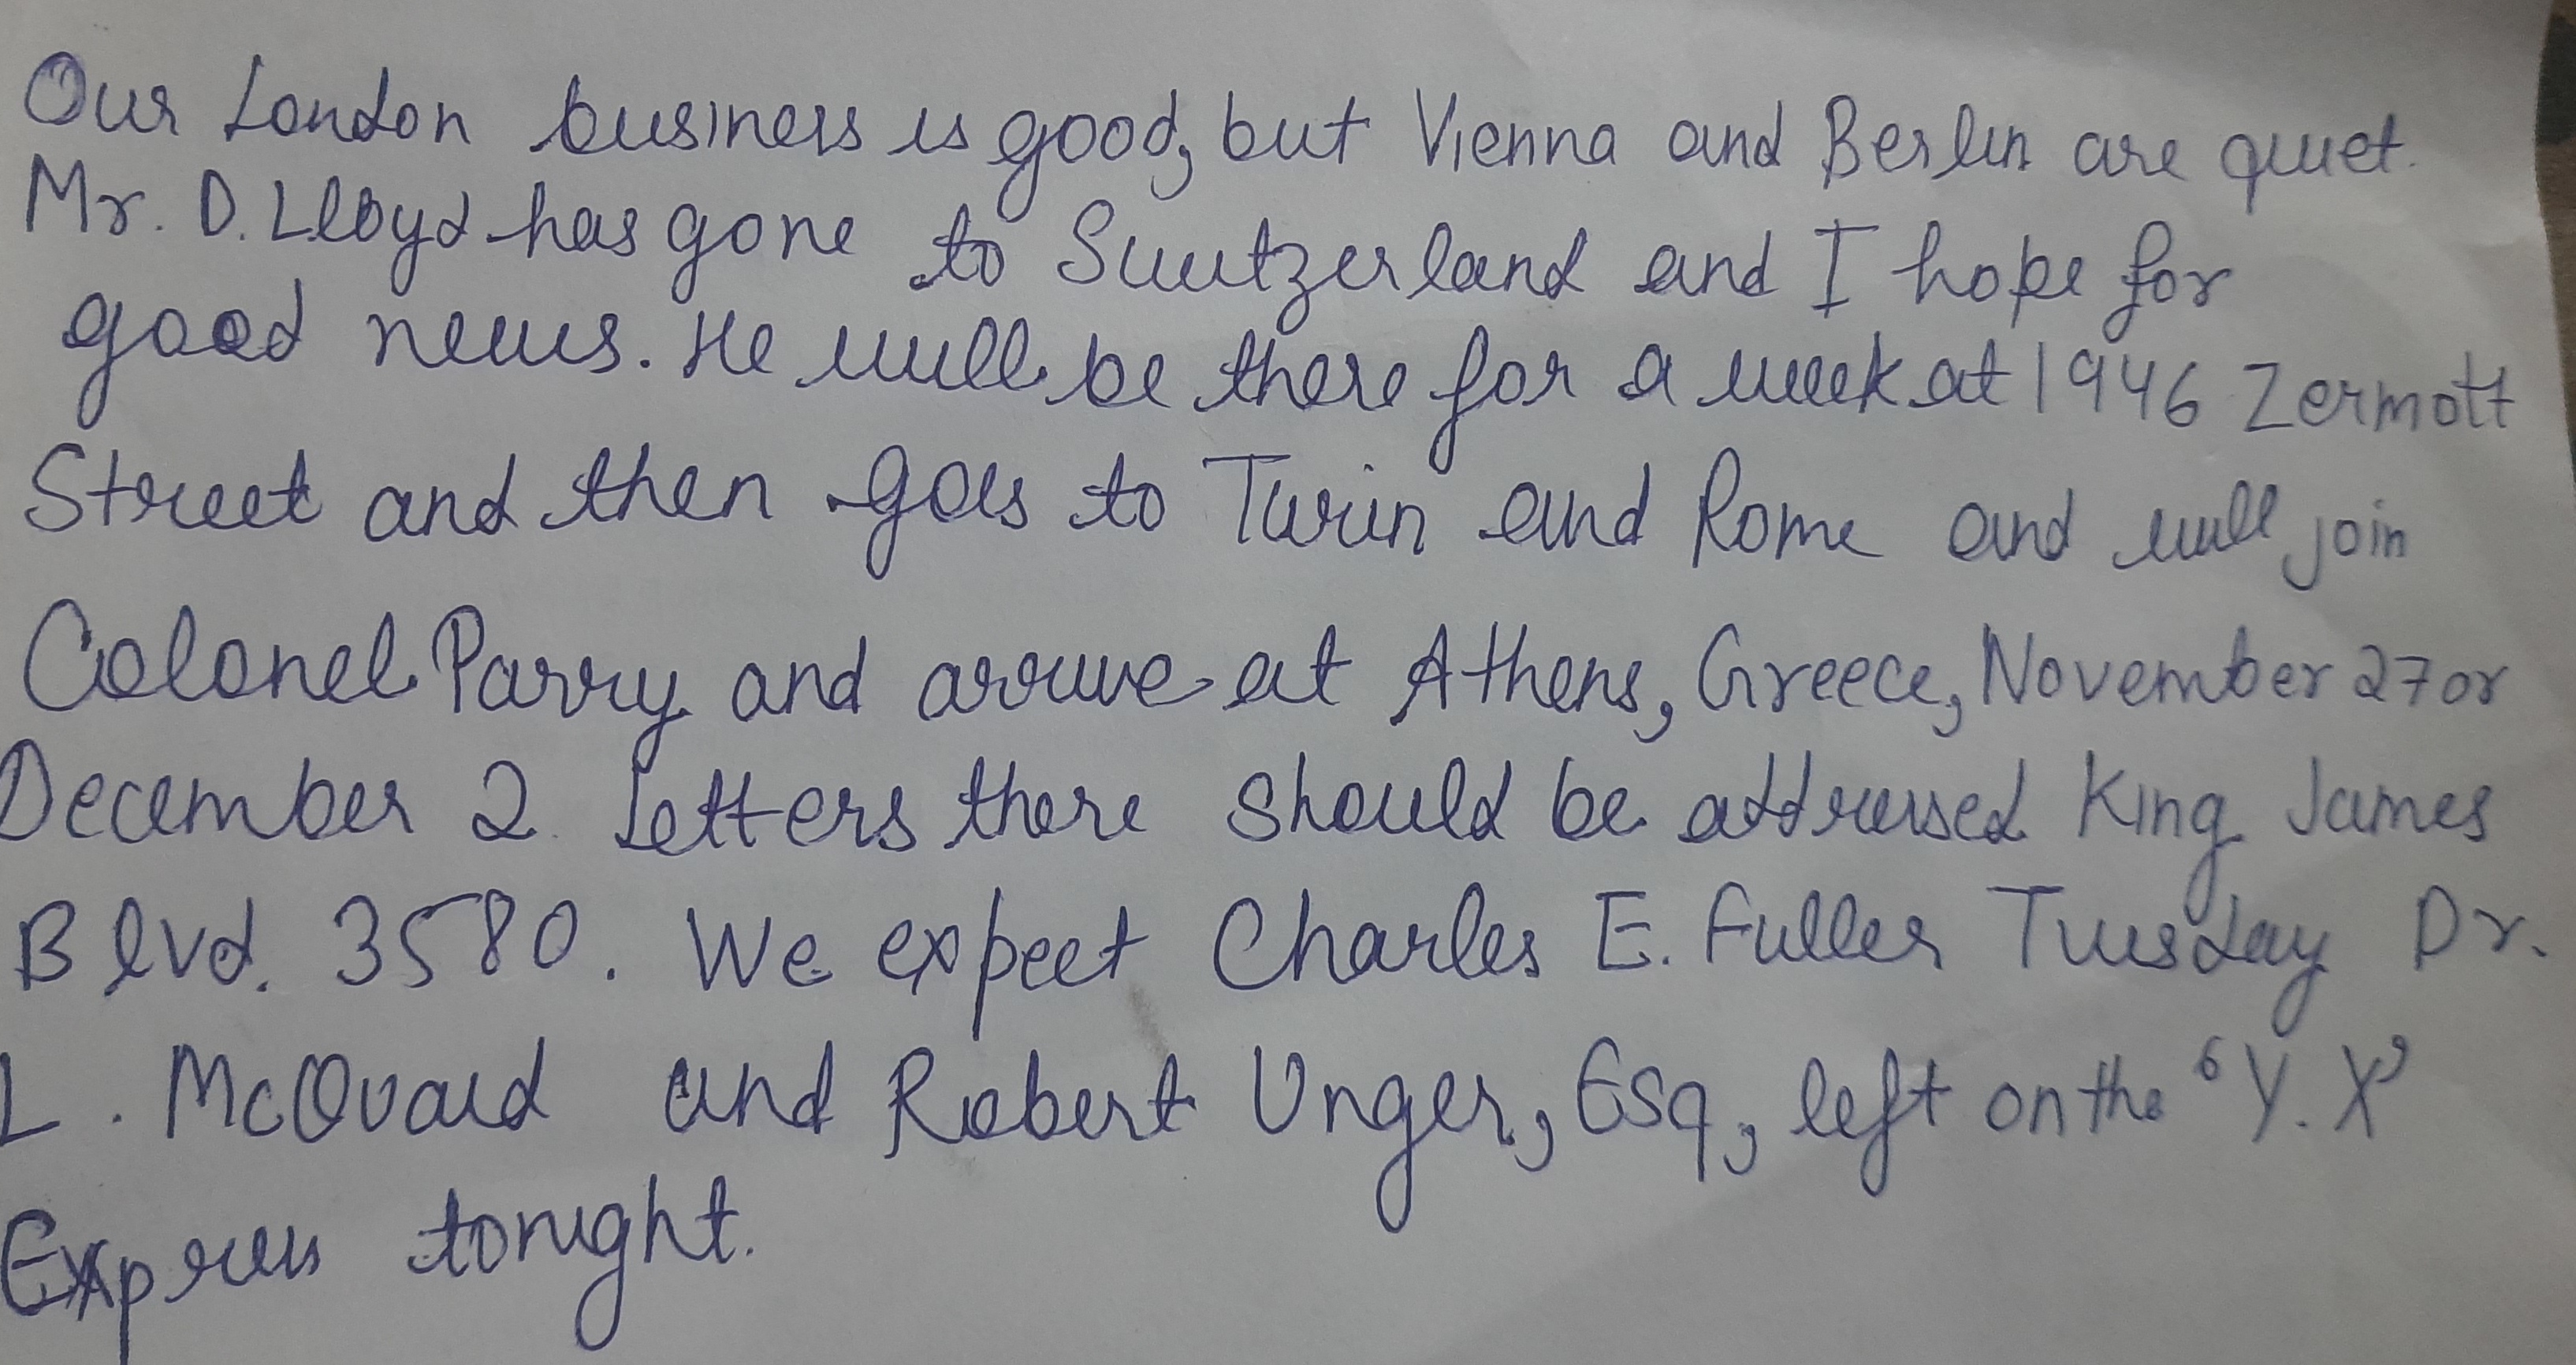 Our London business is good, but Vienna and Berlin are quiet.
Mr. D. Lloyd has gone to Switzerland and I hope for
good news. He will be there for a week at 1946 Zermott
Street and then goes to Turin and Rome and will join
Colonel Parry and arrive at Athens, Greece, November 27 or
December 2. Letters there should be addressed King James
Blvd. 3580. We expect Charles E. Fuller Tuesday Dr.
L. McQuaid and Robert Unger, Esq, left on the 'Y.X'
Express tonight.